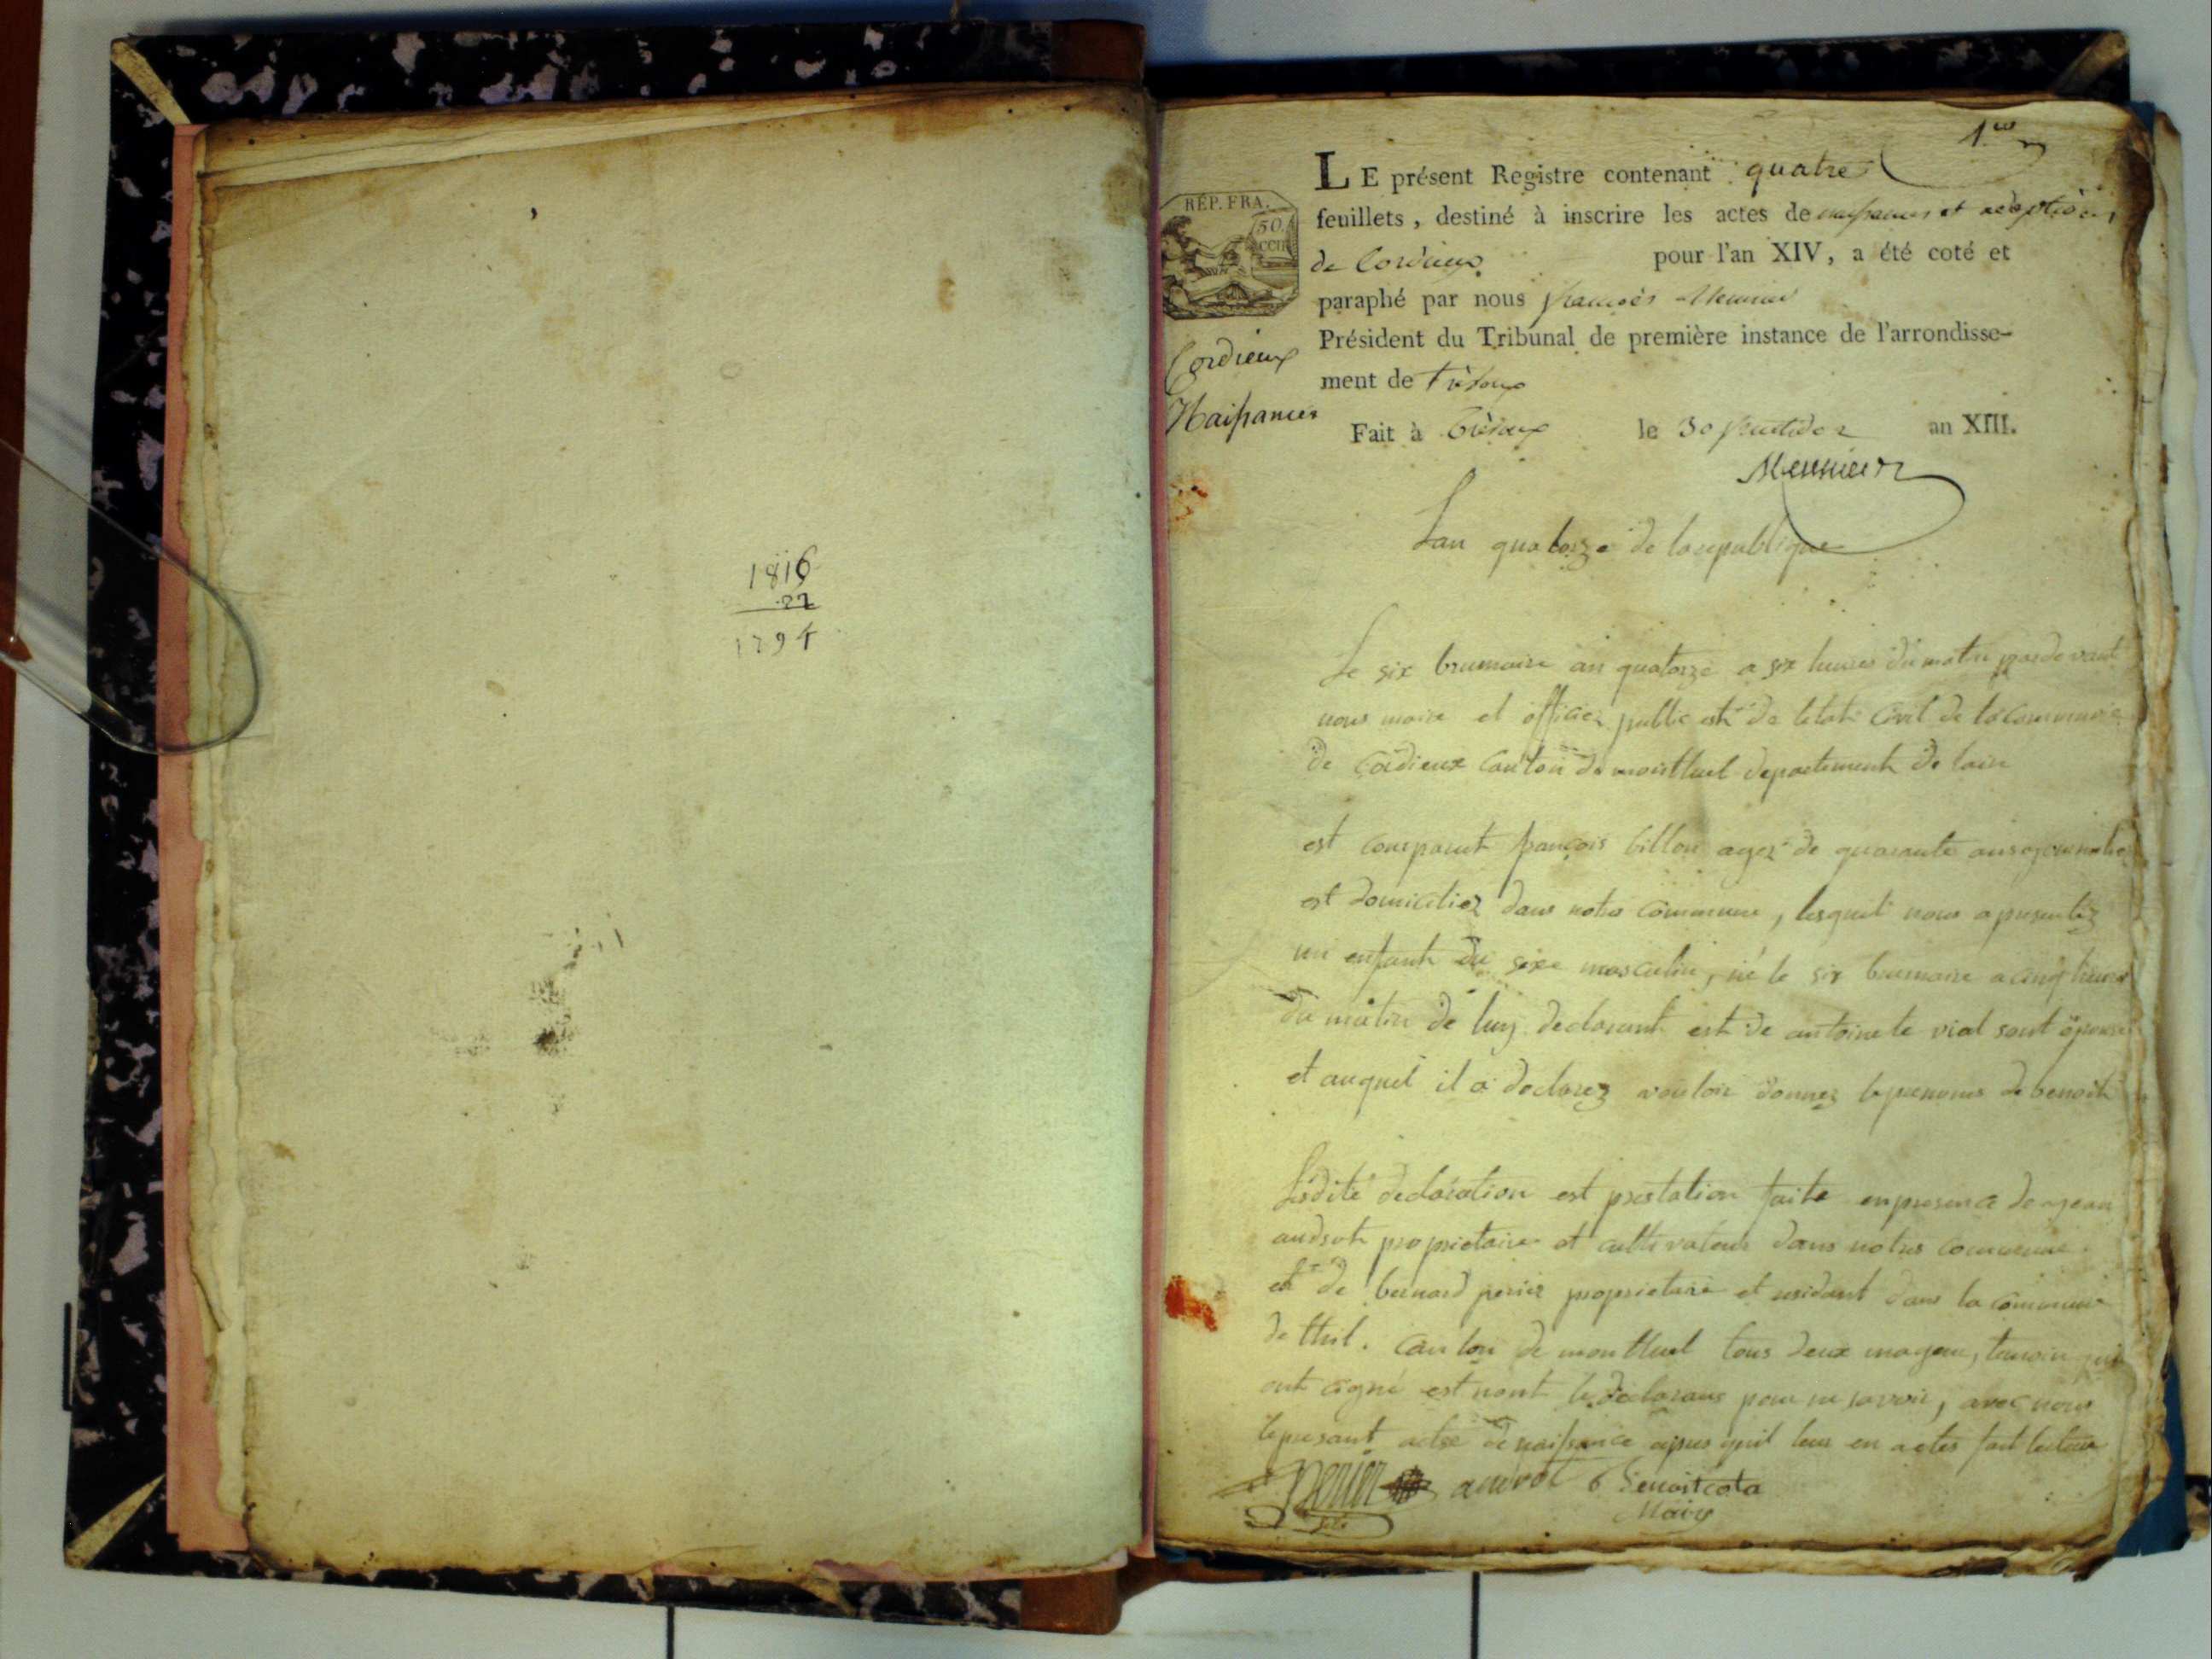 1816
22
1794
1er
LE présent Registre contenant quatre
feuillets, destiné à inscrire les actes de naissances et adoptions
de Cordieux pour l'an XIV, a été coté et
paraphé par nous françois Meunier
Président du Tribunal de première instance de l'arrondisse-
ment de trévoux
Fait à trévoux le 30 fructidor an XIII.
RÉP. FRA.
50
CCIII
Cordieux
Naissances
Meunier
Lan quatorze de la republique
Le six brumaire an quatorze a six heures du matin pardevant
nous maire et officier public est de letat Civil de la commune
de Cordieux Canton de montluel departement de lain
est comparut françois billon agez de quarante ans journalier
est domiciliez dans notre commune, lesquel nous a presentez
un enfant du sexe masculin, né le six brumaire a cinq heures
du matin de luy declarant est de antoinete vial sont épouse
et auquel il a declarez vouloir donnez le prenoms de benoit
Lesdite declaration est prestation faite en presence de jean
audrot proprietaire et cultivateur dans notre commune
et de bernard perier proprietaire et residant dans la commune
de thil. Canton de montluel tous deux mageur, temoin qui
ont cigné est nont le declarans pour ne savoir, avec nous
le presant acte de naissance apres quil leur en aetes fait lecture
perier audrot Benoit cota
Maire